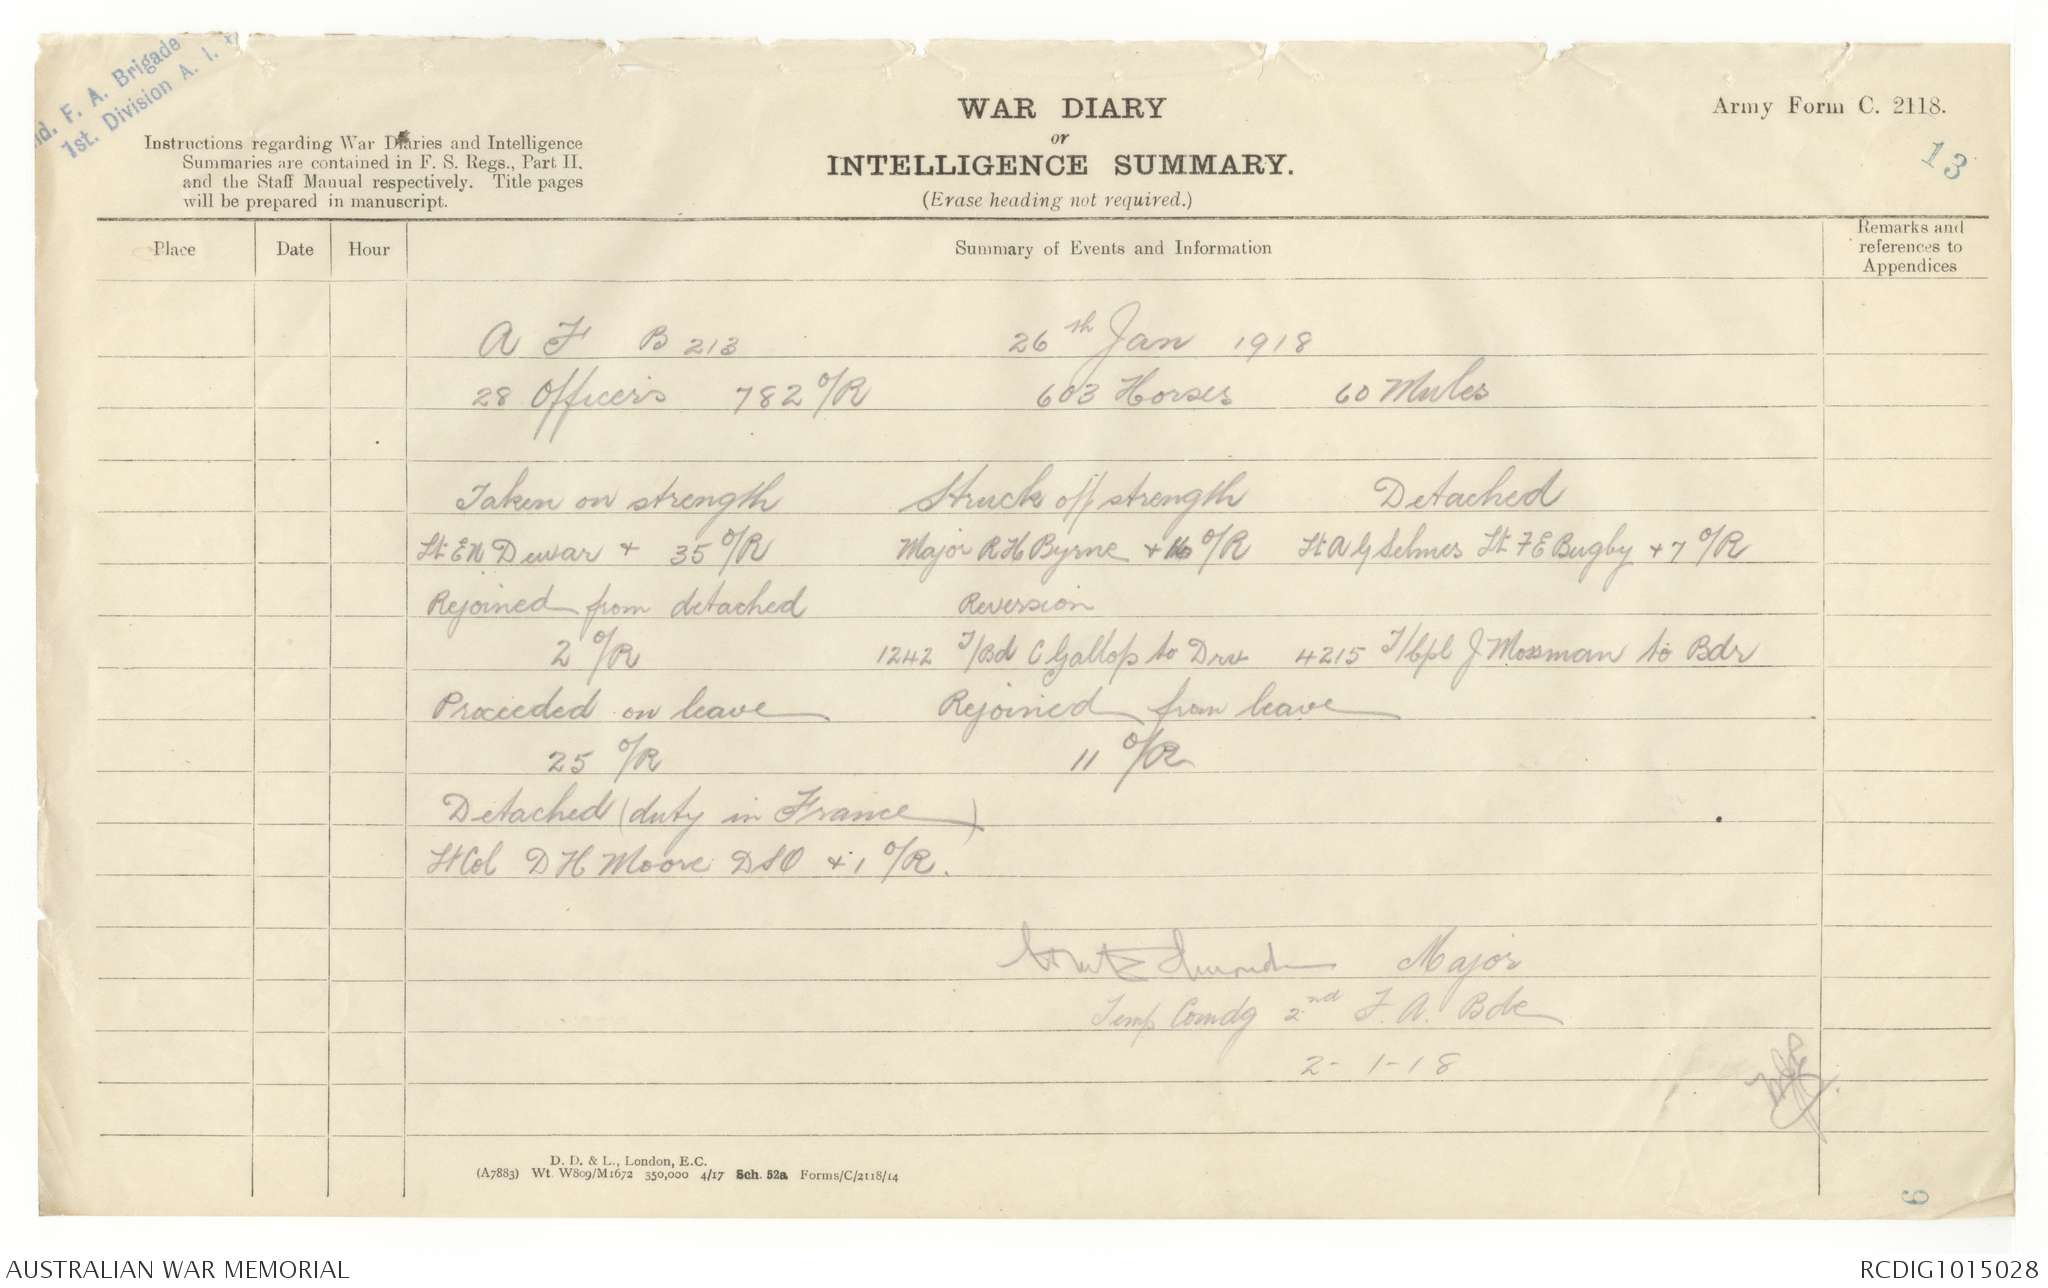 nd. F. A. Brigade
1st. Division A. I.
WAR DIARY
or
INTELLIGENCE SUMMARY.
(Erase heading not required.)
Army Form C. 2118.
13
Instructions regarding War Diaries and Intelligence
Summaries are contained in F. S. Regs., Part II.
and the Staff Manual respectively. Title pages
will be prepared in manuscript.
Place Date Hour Summary of Events and Information Remarks and references to Appendices
A F B 213 26th Jan 1918
28 Officers 782 O/R 603 Horses 60 Mules
Taken on strength Struck off strength Detached
Lt E N Dewar + 35 O/R Major R H Byrne + 16 O/R Lt A G Selmes Lt F E Bugby + 7 O/R
Rejoined from detached Reversion
2 O/R 1242 T/Bd C Gallop to Drv 4215 T/Cpl J Mossman to Bdr
Proceeded on leave Rejoined from leave
25 O/R 11 O/R
Detached (duty in France)
Lt Col D H Moore DSO + 1 O/R.
Major
Temp Comdg 2nd F. A. Bde
2-1-18
D. D. & L., London, E.C.
(A7883) Wt. W809/M1672 350,000 4/17 Sch. 52a Forms/C/2118/14
9
AUSTRALIAN WAR MEMORIAL
RCDIG1015028